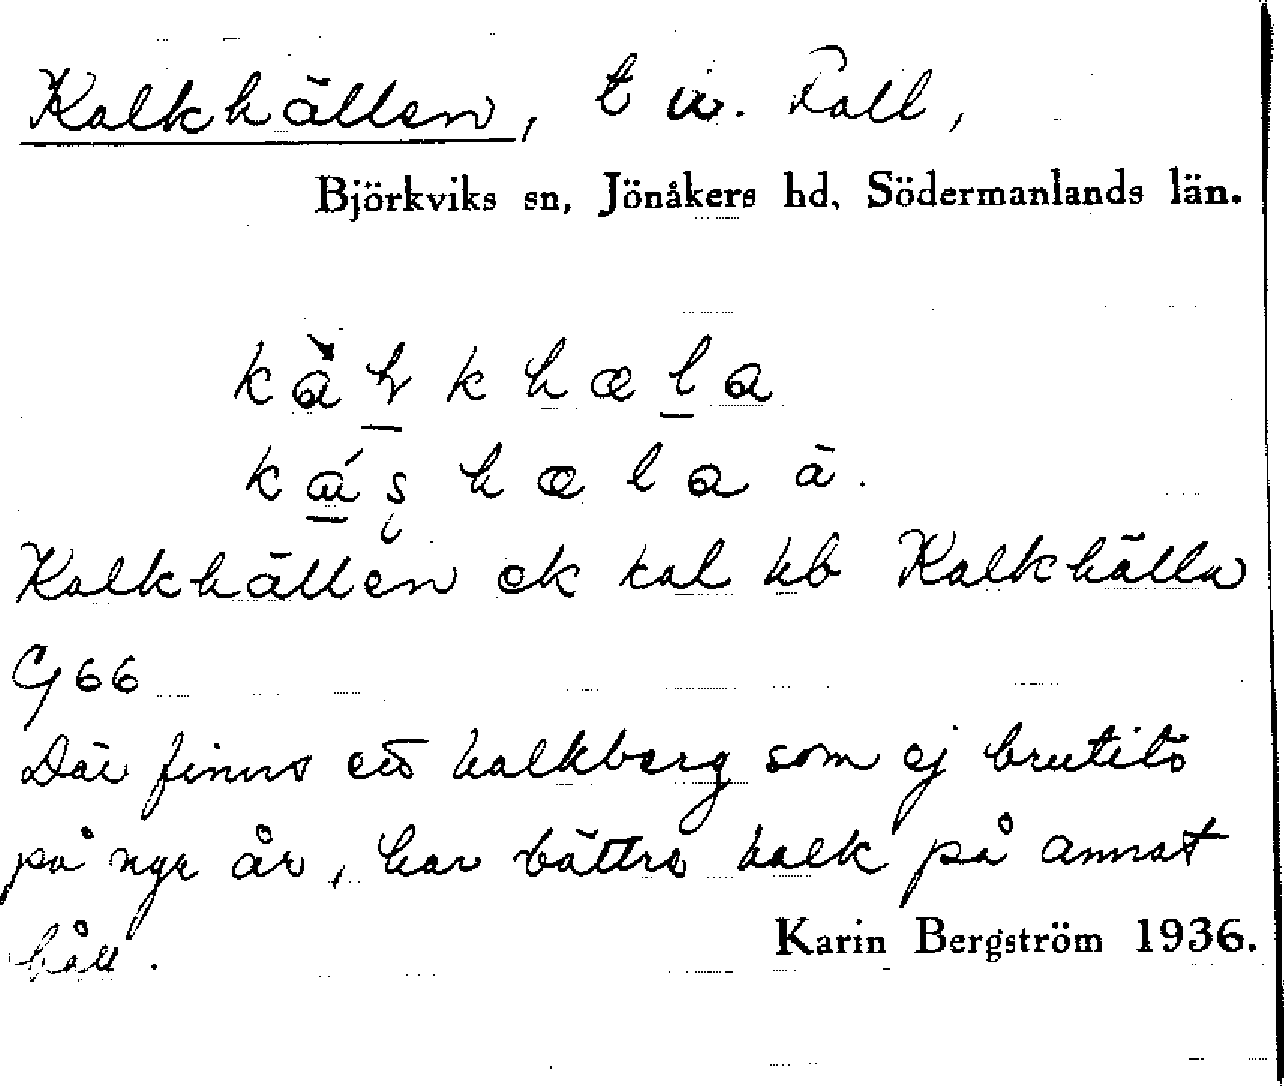 Kalkhällen, t u. Fall,
Björkviks sn, Jönåkers hd, Södermanlands län.
kàlkhæla
káshæla à.
Kalkhällen ek kal hb Kalkhälla
G 66
Där finns ett kalkberg som ej brutits
på ngr år, har bättre kalk på annat
håll.
Karin Bergström 1936.